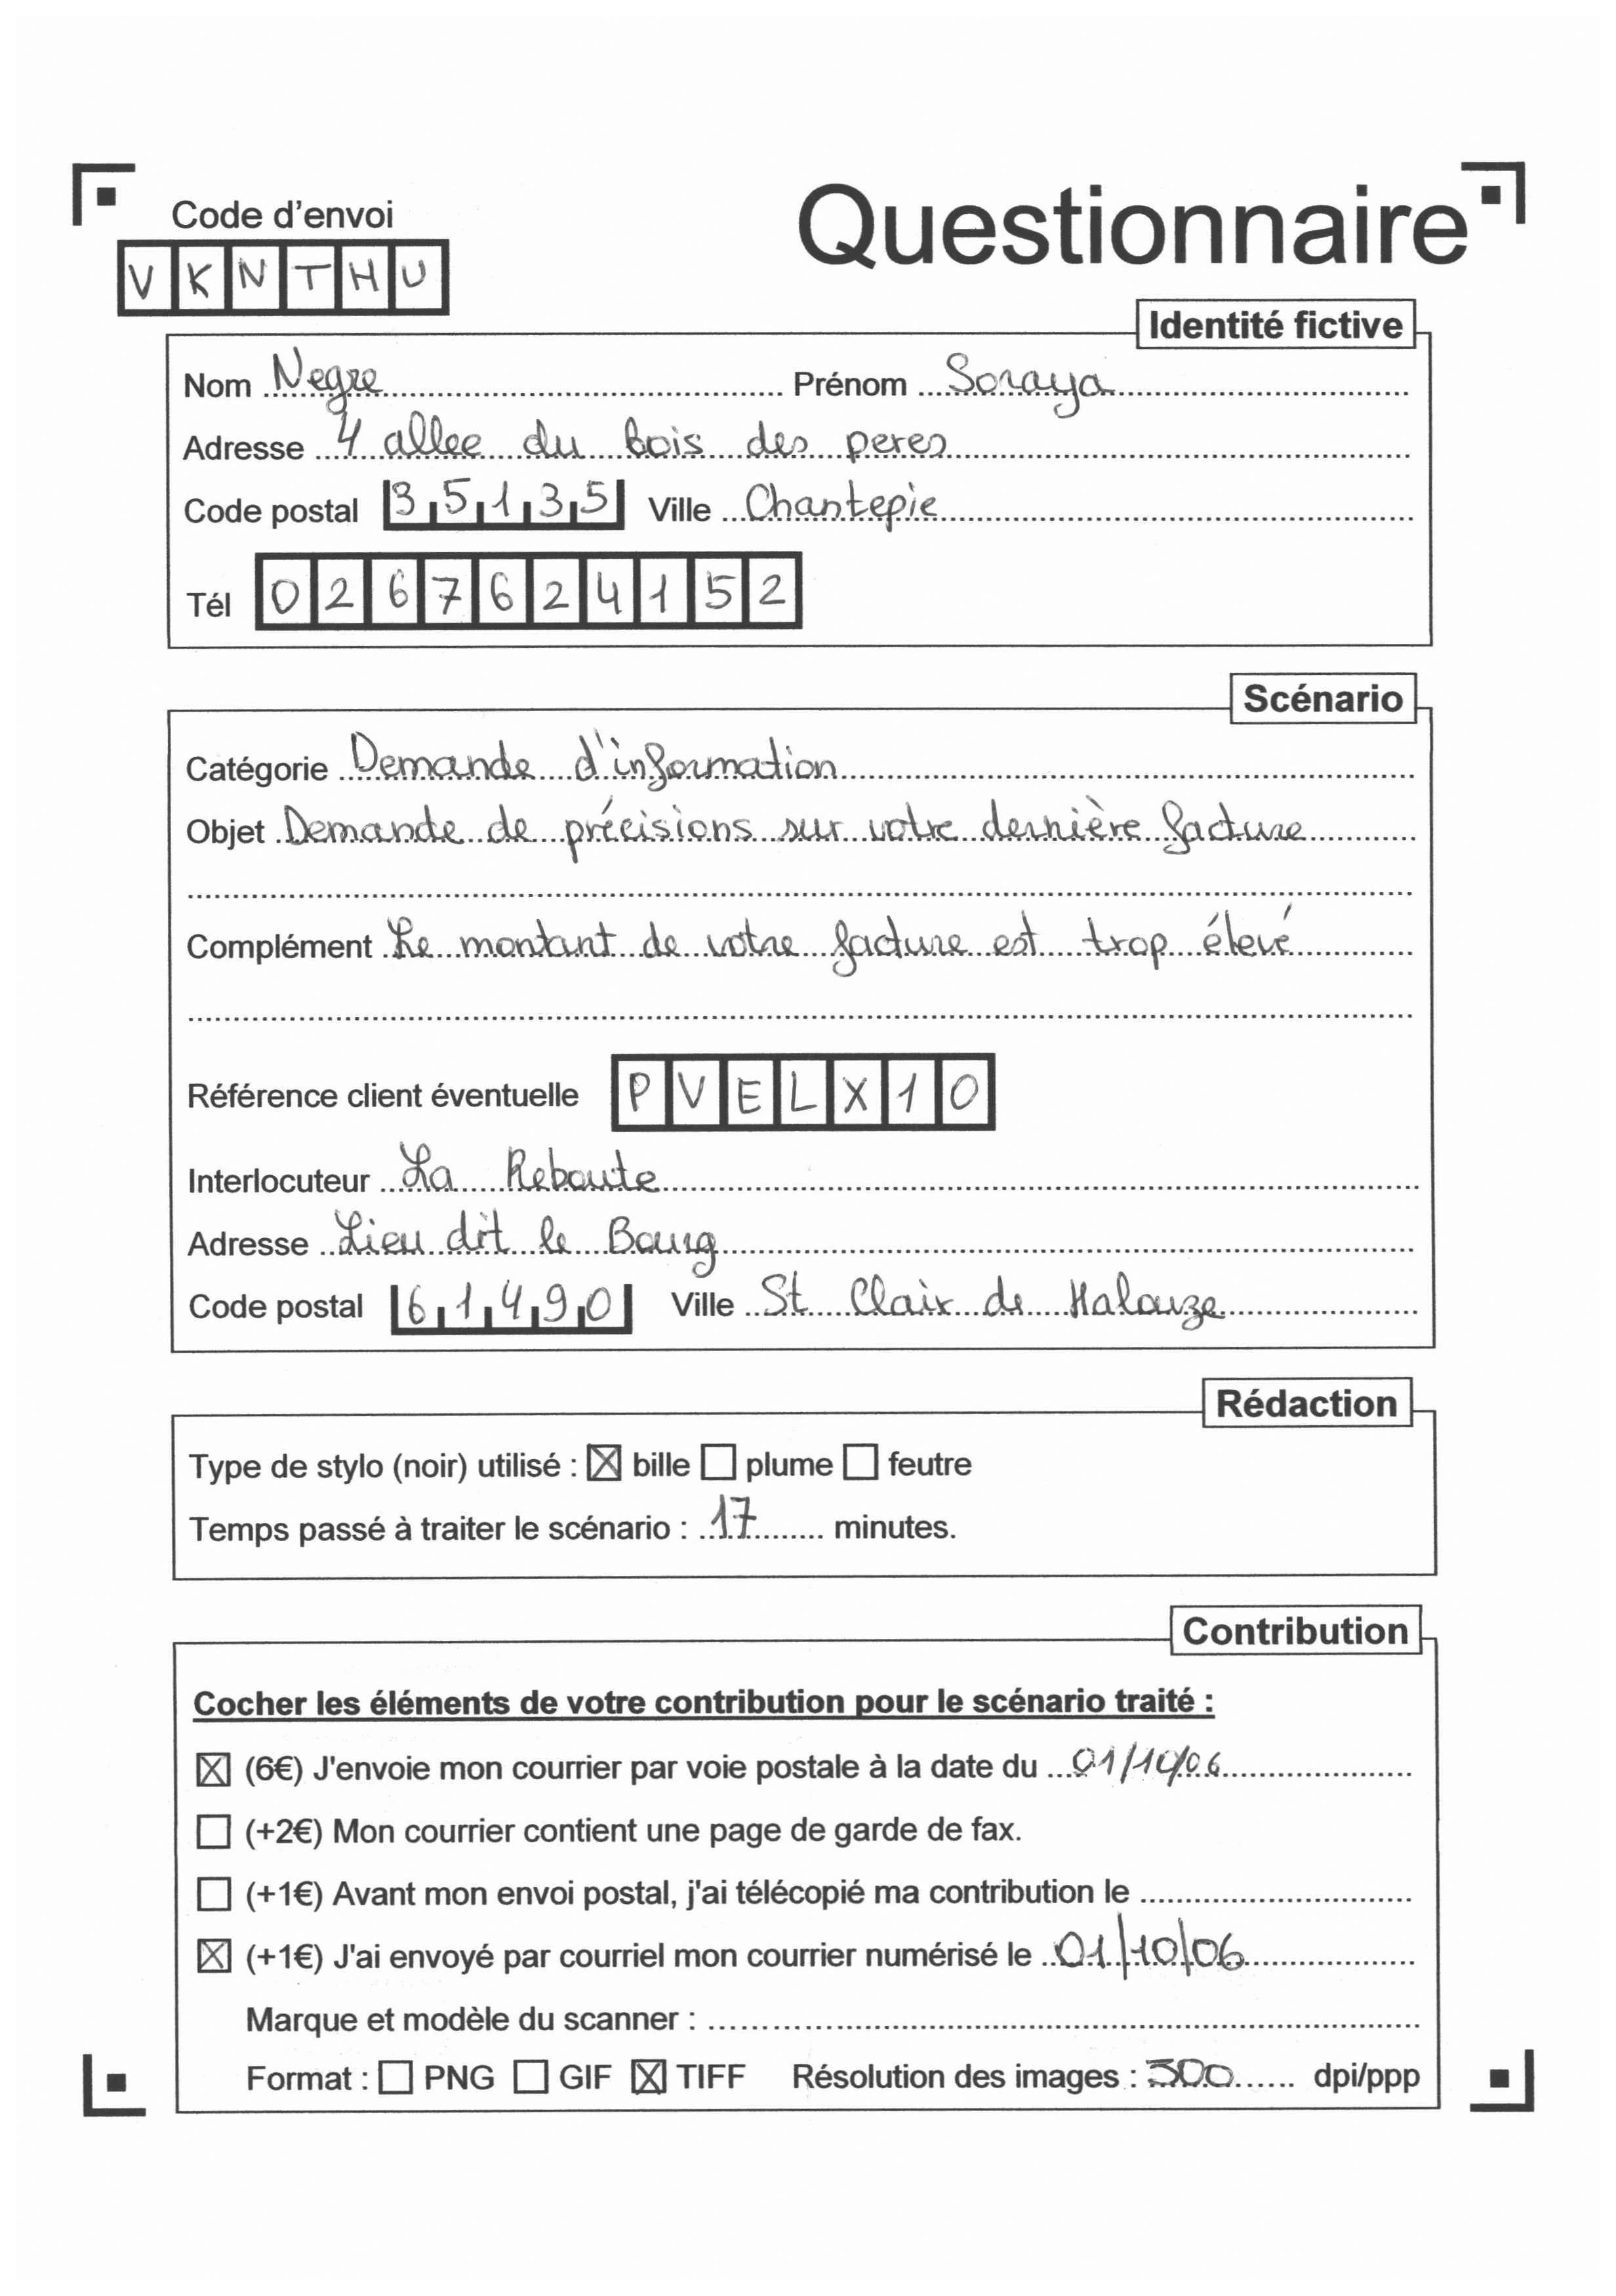 Code d'envoi
Questionnaire
V K N T H U
Identité fictive
Nom Negre Prénom Soraya
Adresse 4 allee du bois des peres
Code postal 35135 Ville Chantepie
Tél 0267624152
Scénario
Catégorie Demande d'information
Objet Demande de précisions sur votre dernière facture
Complément Le montant de votre facture est trop élevé
Référence client éventuelle P V E L X 1 0
Interlocuteur La Reboute
Adresse Lieu dit le Bourg
Code postal 61490 Ville St Clair de Halouze
Rédaction
Type de stylo (noir) utilisé : ☒ bille ☐ plume ☐ feutre
Temps passé à traiter le scénario : 17 minutes.
Contribution
Cocher les éléments de votre contribution pour le scénario traité :
☒ (6€) J'envoie mon courrier par voie postale à la date du 01/10/06
☐ (+2€) Mon courrier contient une page de garde de fax.
☐ (+1€) Avant mon envoi postal, j'ai télécopié ma contribution le
☒ (+1€) J'ai envoyé par courriel mon courrier numérisé le 01/10/06
Marque et modèle du scanner :
Format : ☐ PNG ☐ GIF ☒ TIFF Résolution des images : 300 dpi/ppp